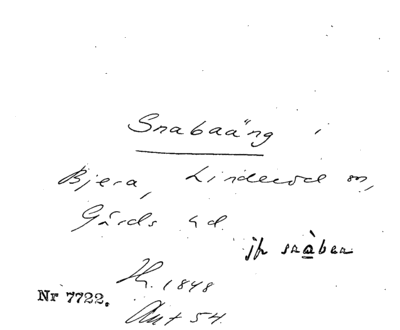 Snabaäng i
Bjera, Linderöd sn,
Gärds hd.
jfr snàben
H. 1848
Nr 7722.
Ant 54.